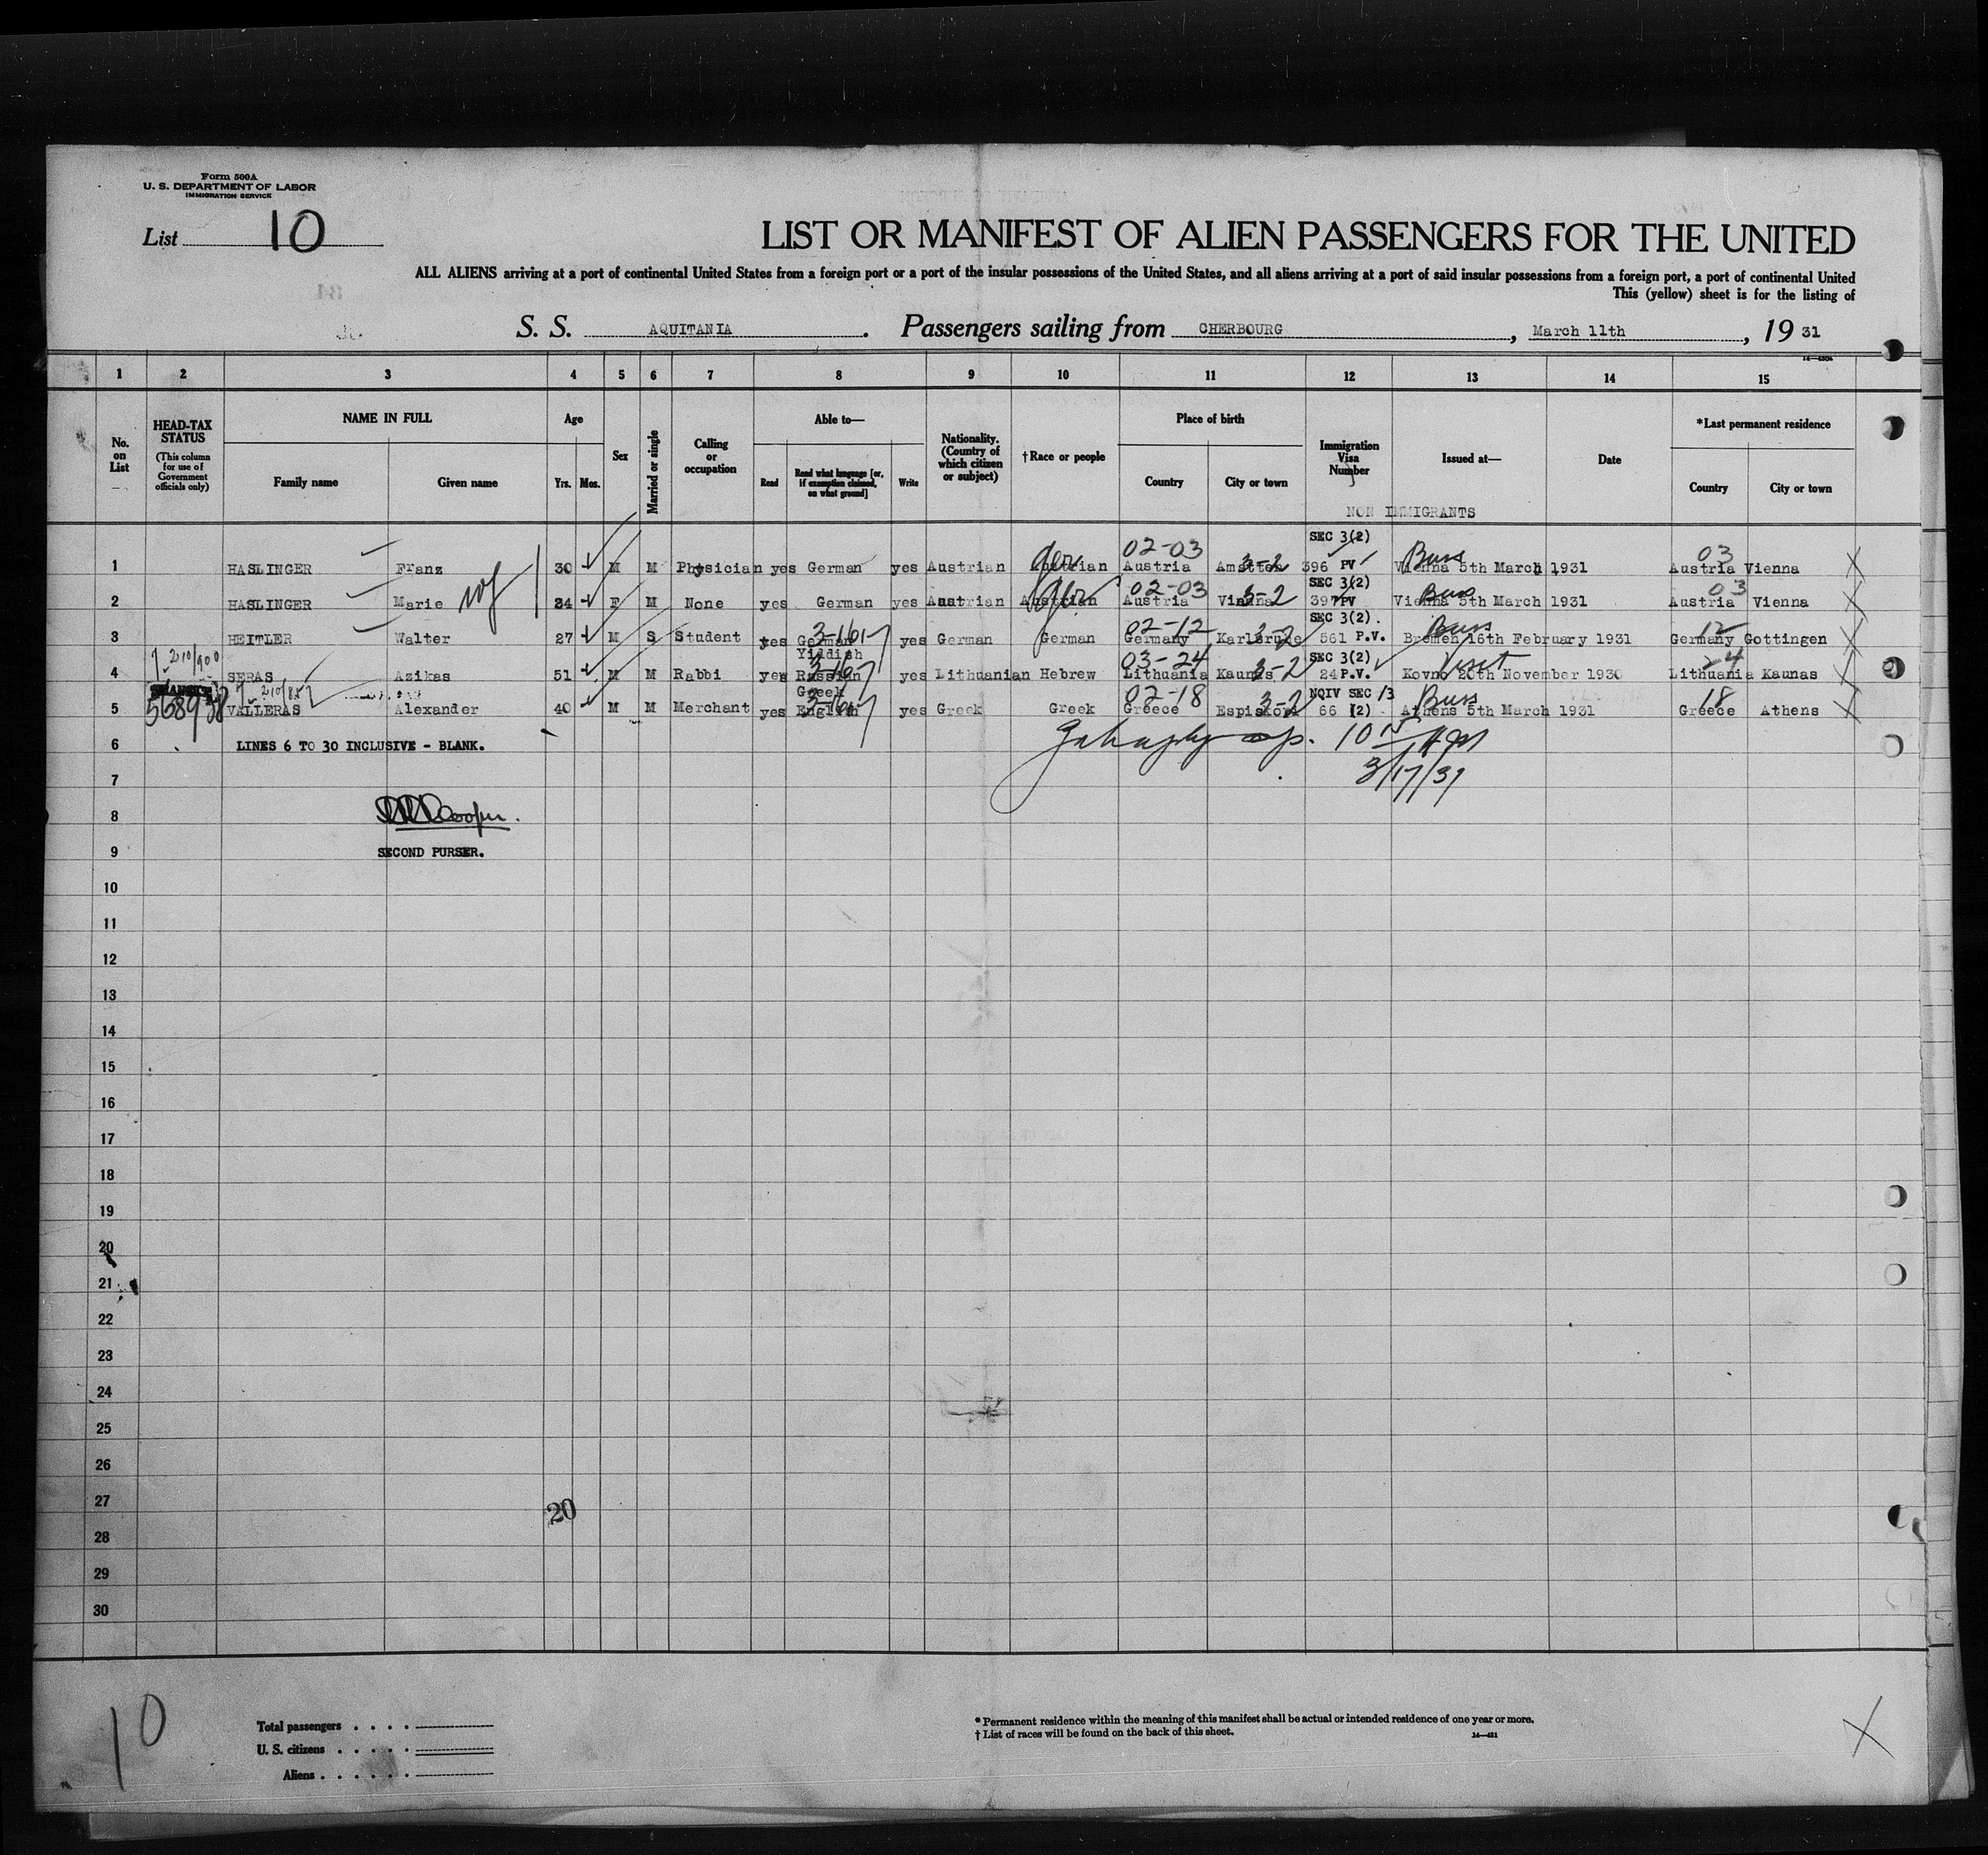 Form 500A
U. S. DEPARTMENT OF LABOR
IMMIGRATION SERVICE
List 10
LIST OR MANIFEST OF ALIEN PASSENGERS FOR THE UNITED
ALL ALIENS arriving at a port of continental United States from a foreign port or a port of the insular possessions of the United States, and all aliens arriving at a port of said insular possessions from a foreign port, a port of continental United
This (yellow) sheet is for the listing of
S. S. AQUITANIA. Passengers sailing from CHERBOURG, March 11th, 19 31
1 2 3 4 5 6 7 8 9 10 11 12 13 14 15
No. on List
HEAD-TAX STATUS (This column for use of Government officials only)
NAME IN FULL
Family name Given name
Age
Yrs. Mos.
Sex
Married or single
Calling or occupation
Able to—
Read Read what language [or, if exemption claimed, on what ground] Write
Nationality. (Country of which citizen or subject)
†Race or people
Place of birth
Country City or town
Immigration Visa Number
Issued at—
Date
*Last permanent residence
Country City or town
NON IMMIGRANTS
02-03 SEC 3(2) 03
1 HASLINGER Franz 30 M M Physician yes German yes Austrian Austria 3-2 396 PV Vienna 5th March 1931 Austria Vienna
02-03 SEC 3(2) 03
2 HASLINGER Marie wf 24 F M None yes German yes Austrian Austrian Austria 3-2 397 PV Vienna 5th March 1931 Austria Vienna
3-161- 02-12 SEC 3(2). 12
3 HEITLER Walter 27 M S Student yes German yes German German Germany Karlsruhe 3-2 561 P.V. Bremen 16th February 1931 Germany Gottingen
Yiddish 03-24 SEC 3(2) Visit 24
4 SERAS Azikas 51 M M Rabbi yes Russian yes Lithuanian Hebrew Lithuania Kaunas 3-2 24 P.V. Kovno 20th November 1930 Lithuania Kaunas
Greek 02-18 NQIV SEC /3 18
5 VALLERAS Alexander 40 M M Merchant yes English yes Greek Greek Greece 3-2 66 (2) Athens 5th March 1931 Greece Athens
6 LINES 6 TO 30 INCLUSIVE - BLANK.
7 3/17/31
8 Cooper.
9 SECOND PURSER.
10
11
12
13
14
15
16
17
18
19
20
21
22
23
24
25
26
27 20
28
29
30
10
Total passengers
U. S. citizens
Aliens
* Permanent residence within the meaning of this manifest shall be actual or intended residence of one year or more.
† List of races will be found on the back of this sheet.